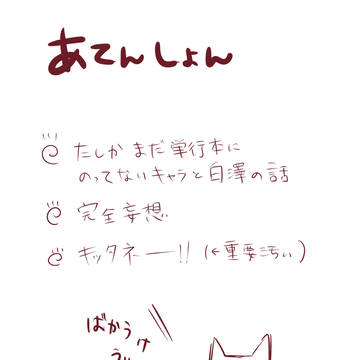 あてんしょん
たしか まだ単行本に
のってないキャラと白澤の話
完全妄想
キッタネー!! (←重要汚い)
ばかうけ